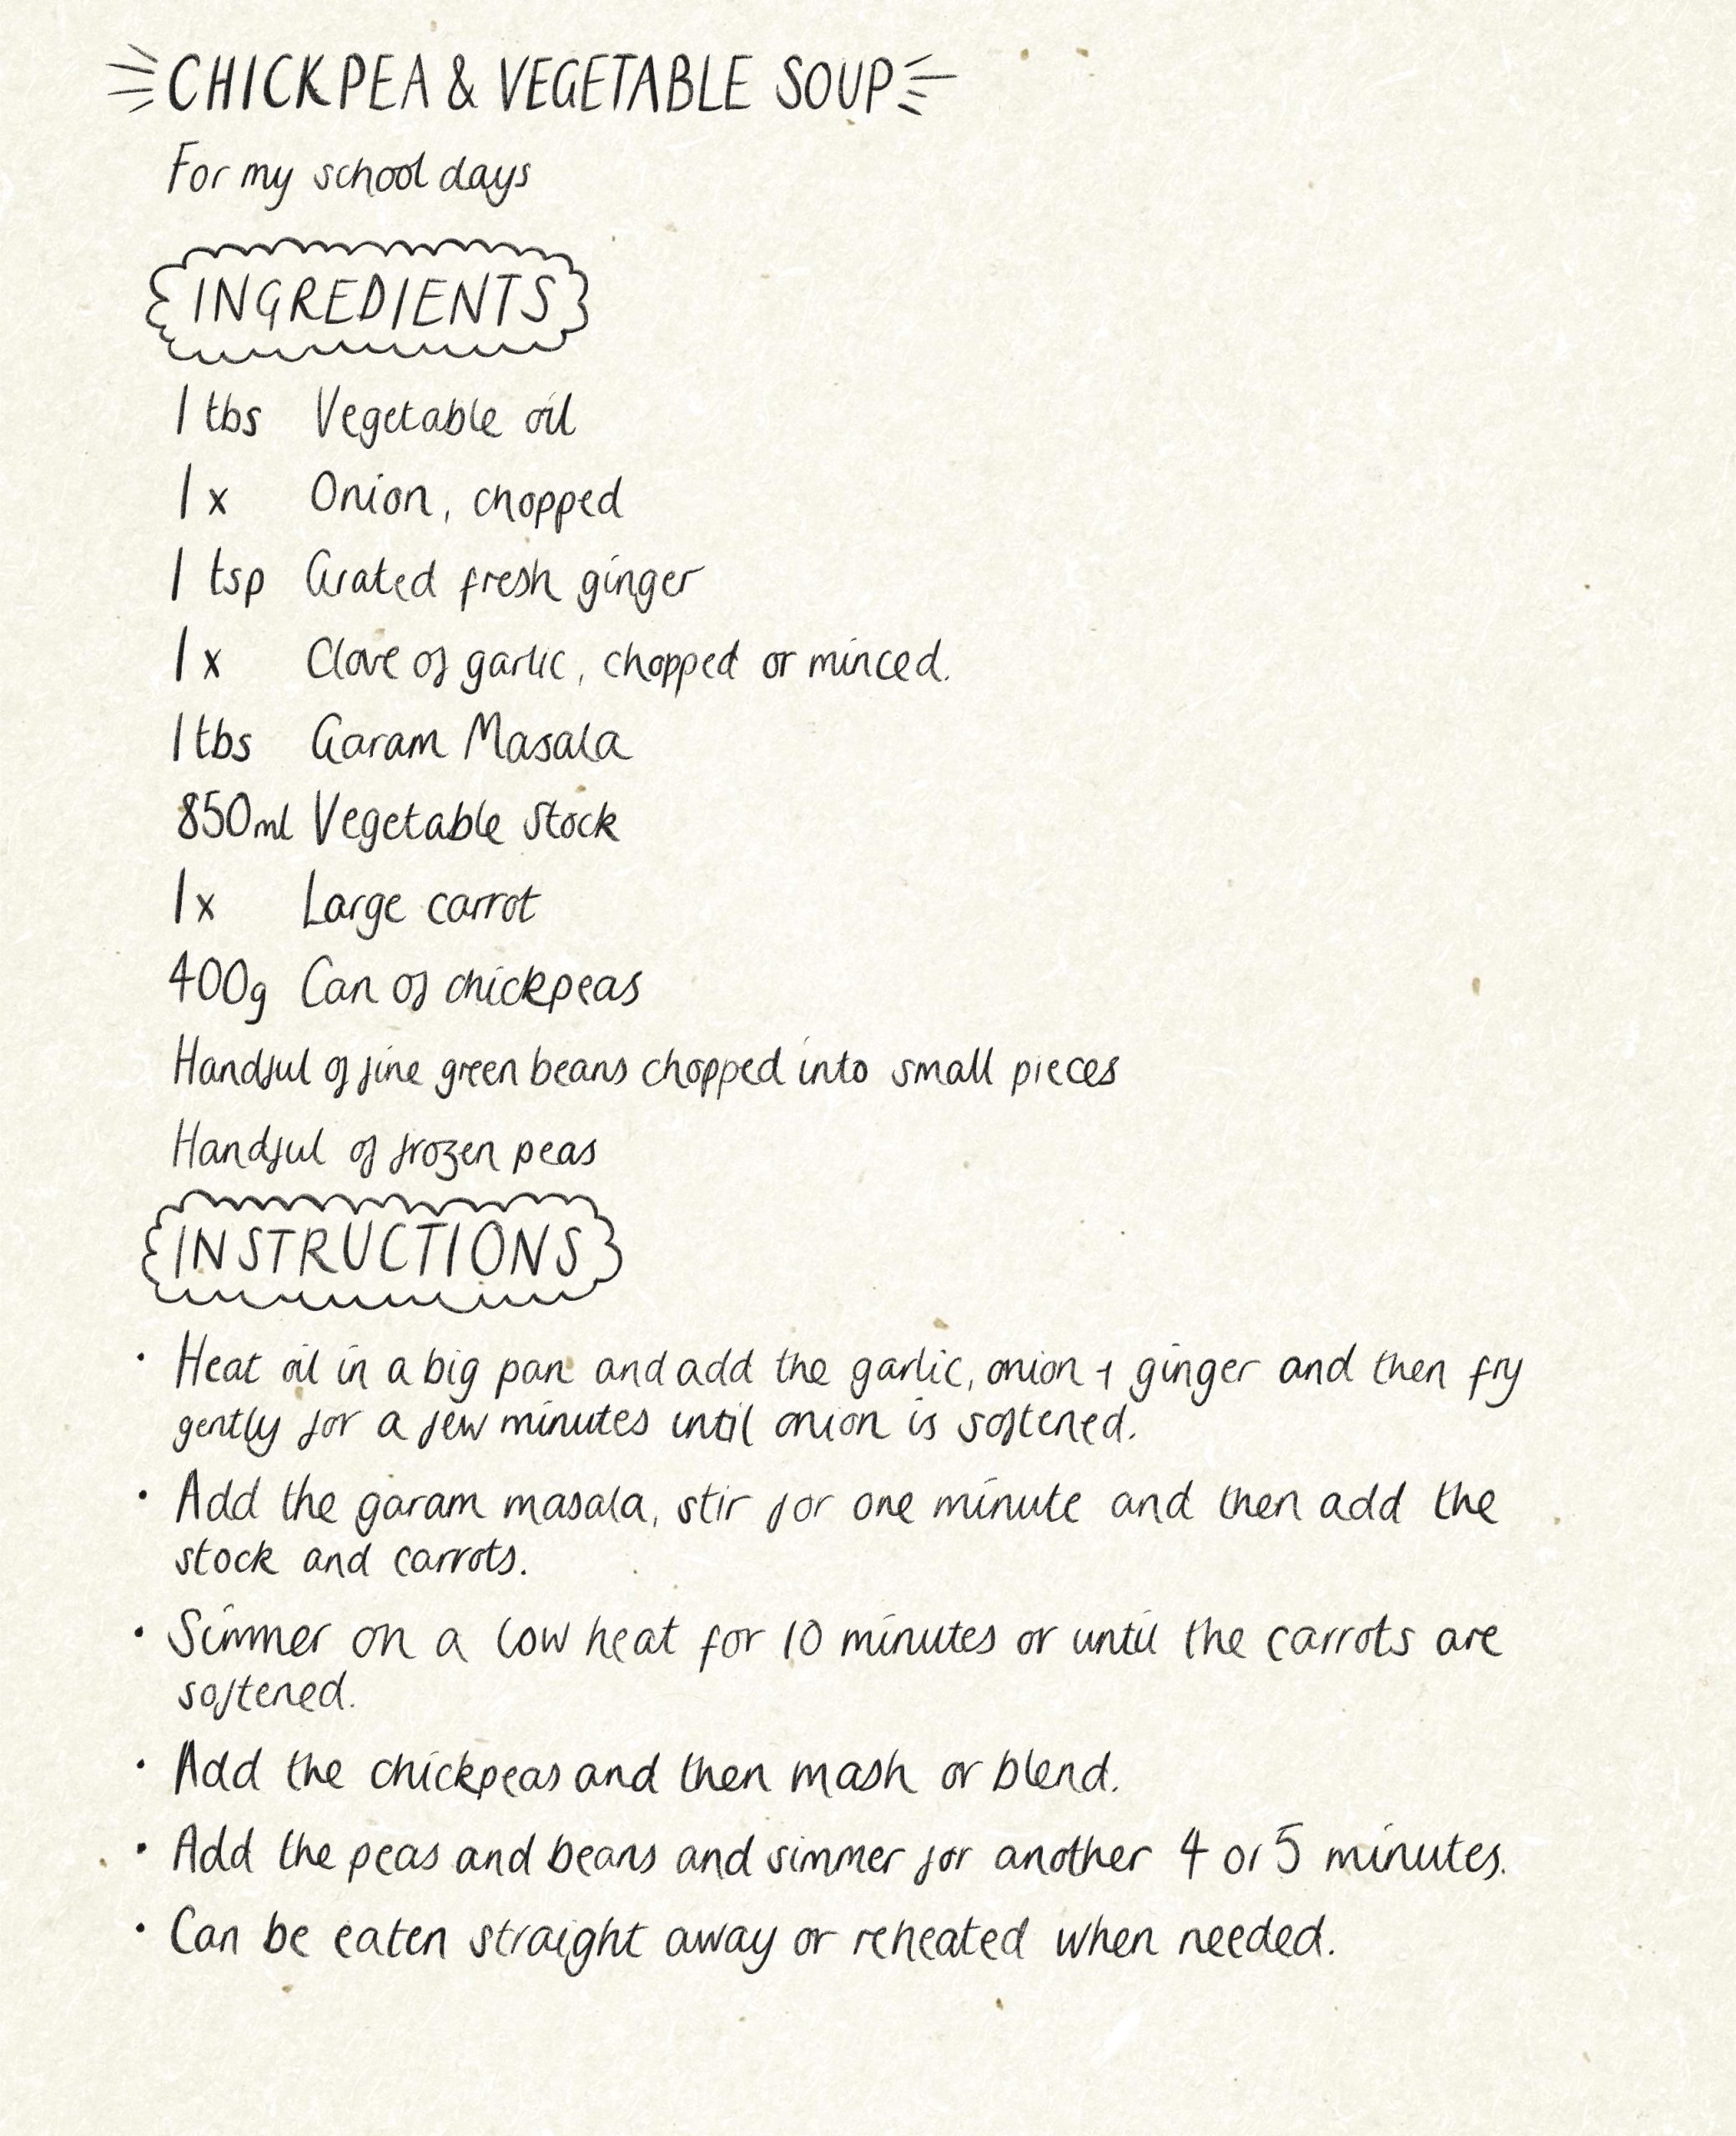 CHICKPEA & VEGETABLE SOUP
For my school days
INGREDIENTS
1 tbs Vegetable oil
1 x Onion, chopped
1 tsp Grated fresh ginger
1 x Clove of garlic, chopped or minced.
1 tbs Garam Masala
850ml Vegetable Stock
1 x Large carrot
400g Can of chickpeas
Handful of fine green beans chopped into small pieces
Handful of frozen peas
INSTRUCTIONS
· Heat oil in a big pan and add the garlic, onion + ginger and then fry
gently for a few minutes until onion is softened.
· Add the garam masala, stir for one minute and then add the
stock and carrots.
· Simmer on a low heat for 10 minutes or until the carrots are
softened.
· Add the chickpeas and then mash or blend.
· Add the peas and beans and simmer for another 4 or 5 minutes.
· Can be eaten straight away or reheated when needed.